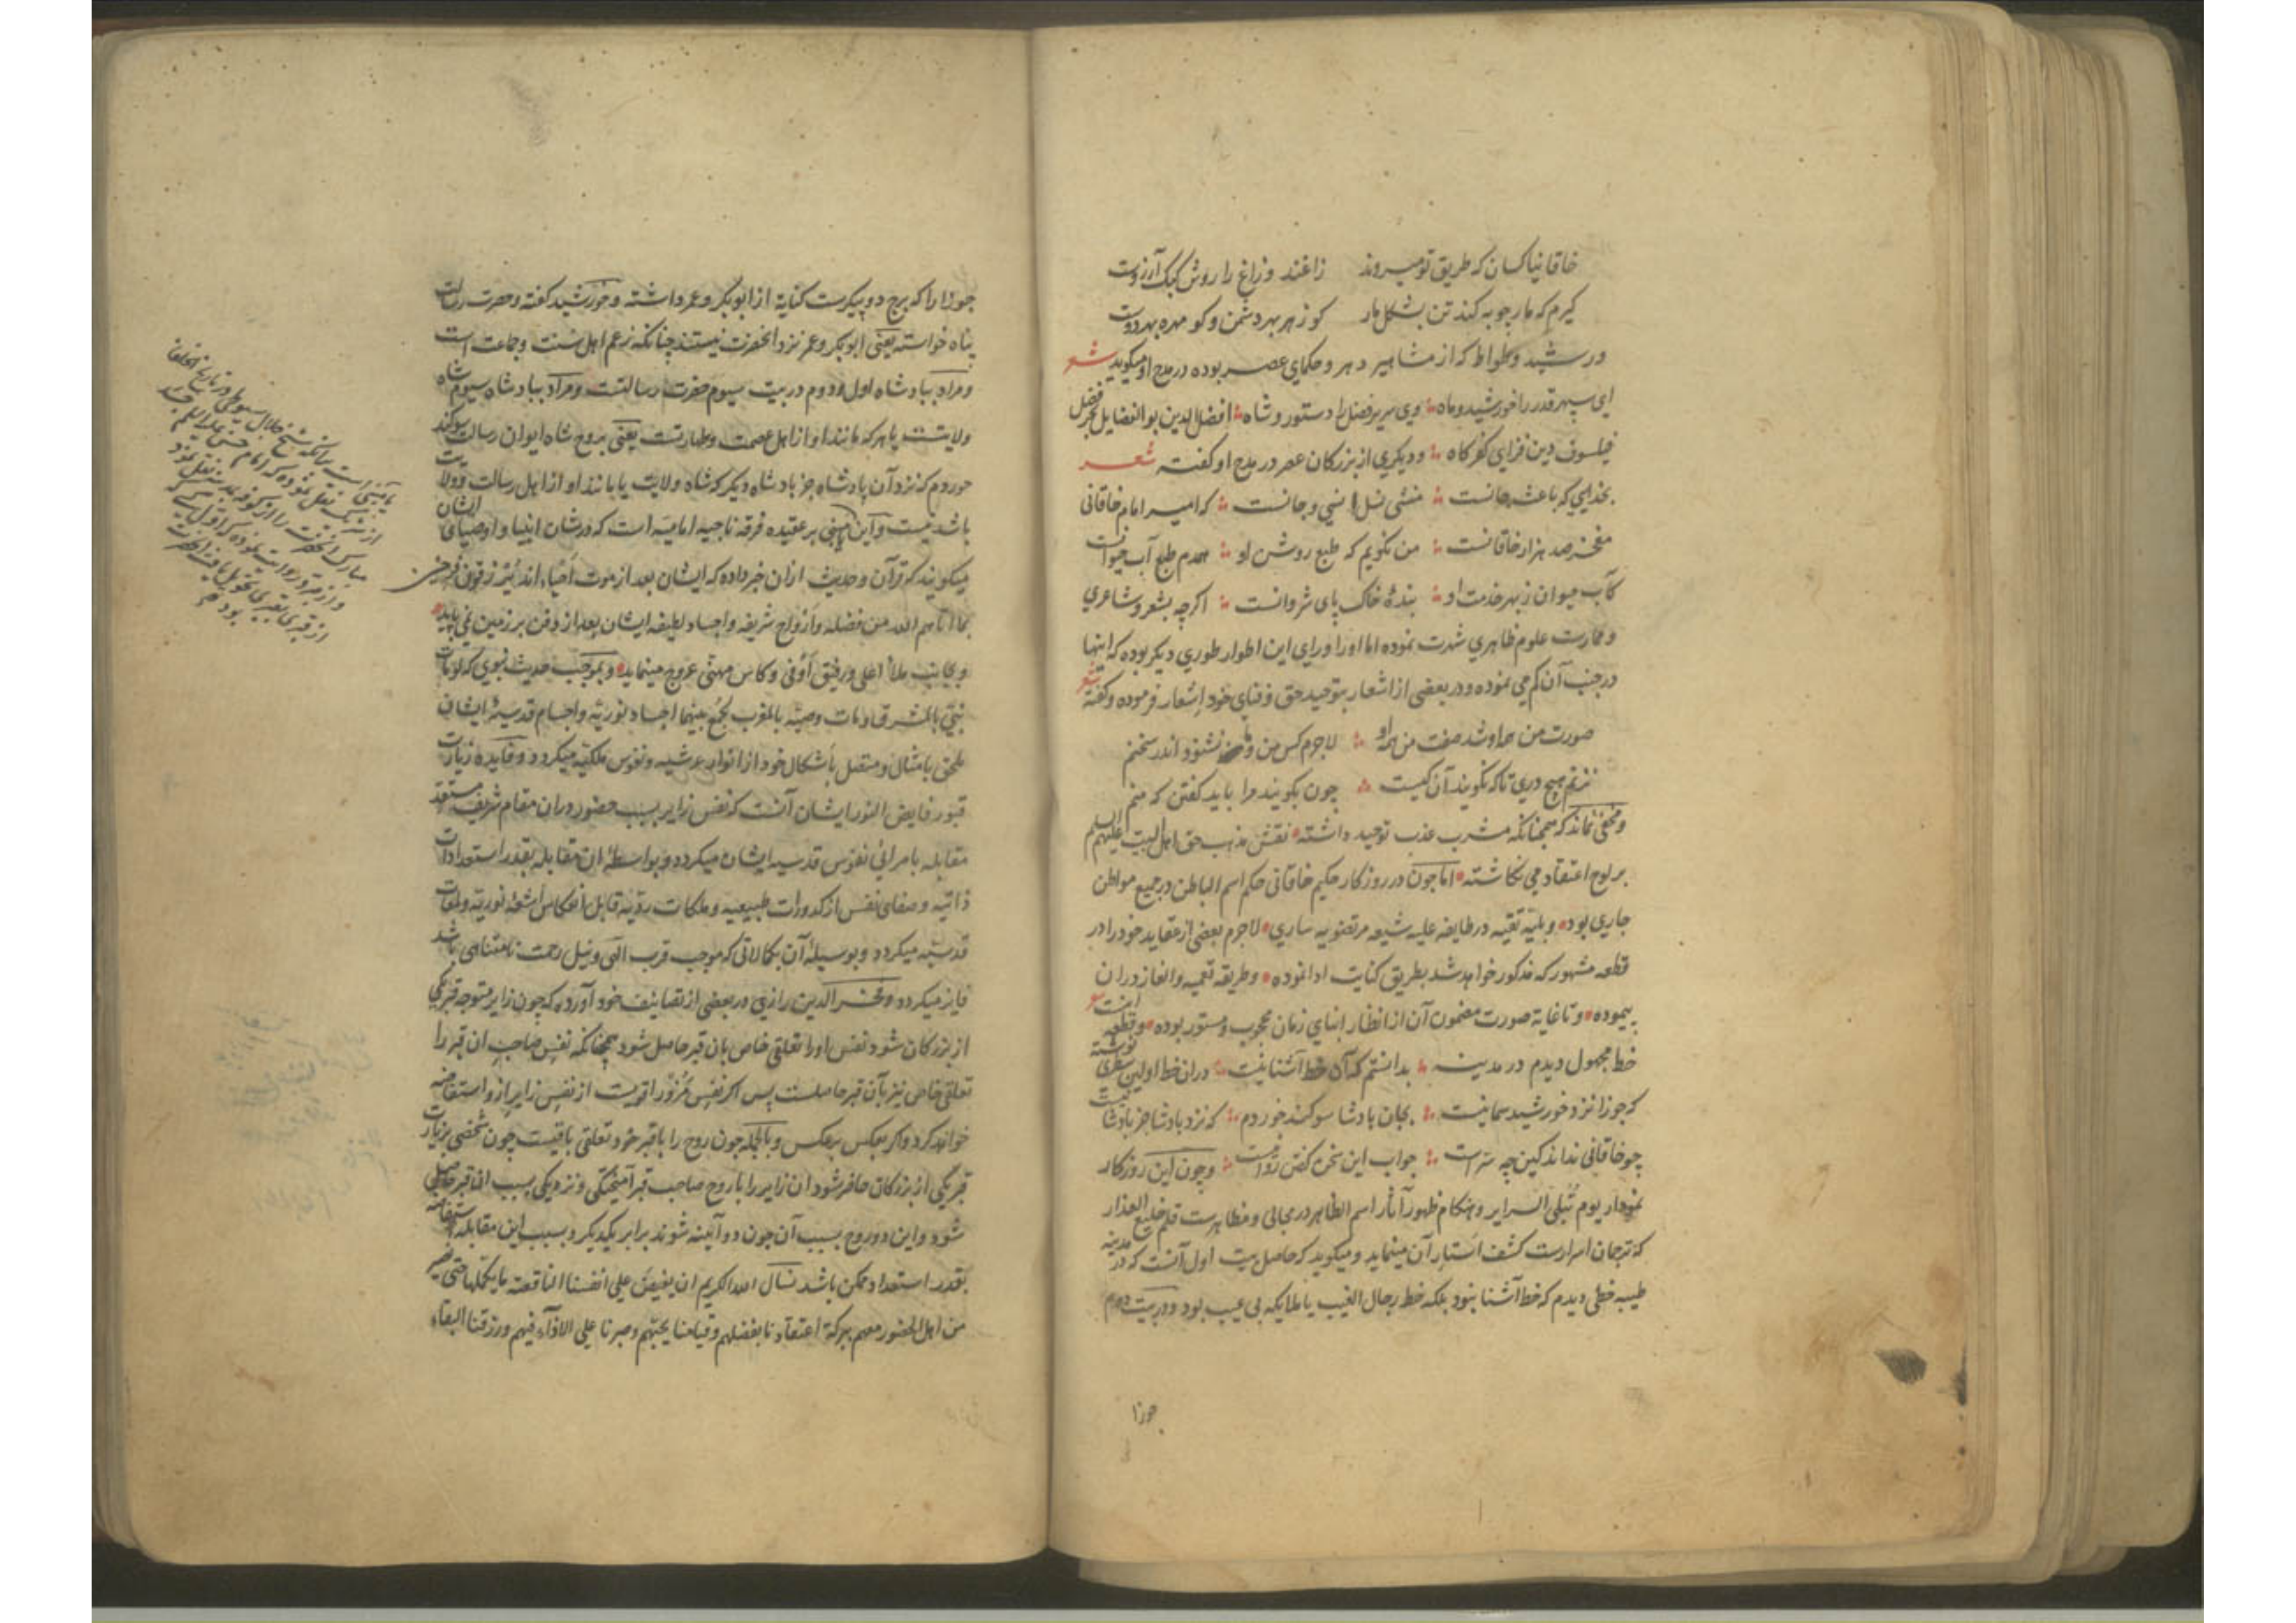 خاقانیا کسان که طریق تو میروند زاغند و زاغ را روش کبک آرزوست
گیرم که مارچوبه کند تن بشکل مار کو زهر بهر دشمن و کو مهره بهر دوست
و رشید وطواط که از مشاهیر دهر و حکمای عصر بوده در مدح او میگوید شعر
ای سپهر قدر را خورشید و ماه وی سریر فضل را دستور و شاه افضل الدین بوالفضایل بحر فضل
فیلسوف دین فزای کفر کاه و دیگری از بزرگان عصر در مدح او گفته شعر
بخدایی که باعث جانست منشی نسل انسی و جانست که امیر امام خاقانی
مفخر صد هزار خاقانست من نگویم که طبع روشن او همدم طبع آب حیوانست
کآب حیوان ز بهر خدمت او بندهٔ خاک پای شروانست اگرچه بشعر و شاعری
و ممارست علوم ظاهری شهرت نموده اما او را ورای این اطوار طوری دیگر بوده که اینها
در جنب آن کم می نموده و در بعضی از اشعار بتوحید حق و فنای خود اشعار فرموده و گفته شعر
صورت من همه او شد صفت من همه او لاجرم کس من و ما نشنود اندر سخنم
نزنم هیچ دری تا که نگویند آن کیست چون بگویند مرا باید گفتن که منم
و مخفی نماند که همچنانکه مشرب عذب توحید داشته نقش مذهب حق اهل البیت علیهم السلام
بر لوح اعتقاد می نگاشته اما چون در روزگار حکیم خاقانی حکم اسم الباطن در جمیع مواطن
جاری بود و بلیهٔ تقیه در طایفه علیه شیعه مرتضویه ساری لاجرم بعضی از عقاید خود را در
قطعه مشهور که مذکور خواهد شد بطریق کنایت ادا نموده و طریقه تعمیه و الغاز در ان
پیموده و تا غایة صورت مضمون آن از انظار ابنای زمان محجوب و مستور بوده و قطعه اینست شعر
خط مجهول دیدم در مدینه بدانستم که آن خط آشنا نیست در ان خط اولین سطری نوشته
که جوزا نزد خورشید سما نیست بجان پادشا سوگند خوردم که نزد پادشا جز پادشا نیست
چو خاقانی نداند کین چه سر است جواب این سخن گفتن روا نیست و چون این روزگار
نمودار یوم تبلی السرایر و هنگام ظهور آثار اسم الظاهر در مجالی و مظاهرست قلم خلیع العذار
که ترجمان اسرارست کشف استار آن مینماید و میگوید که حاصل بیت اول آنست که در مدینه
طیبه خطی دیدم که خط آشنا نبود بلکه خط رجال الغیب یا ملایکه بی عیب بود و در بیت دوم
جوزا
جوزا را که برج دو پیکرست کنایة از ابوبکر و عمر داشته و خورشید گفته و حضرت رسالت
پناه خواسته یعنی ابوبکر و عمر نزد انحضرت نیستند چنانکه زعم اهل سنت و جماعت است
و مراد بپادشاه اول و دوم در بیت سیوم حضرت رسالتست و مراد بپادشاه سیوم شاه
ولایتست یا هر که مانند او از اهل عصمت و طهارتست یعنی بروح شاه ایوان رسالت سوگند
خوردم که نزد آن پادشاه جز پادشاه دیگر که شاه ولایت یا مانند او از اهل رسالت و ولایت
باشد نیست و این مبنی بر عقیده فرقه ناجیه امامیه است که در شان انبیا و اوصیای ایشان
میگویند که قرآن و حدیث از ان خبر داده که ایشان بعد از موت احیاء اند یرزقون فرحین
بما اتاهم الله من فضله و ارواح شریفه و اجساد لطیفه ایشان بعد از دفن بر زمین نمی پاید
و بجانب ملأ اعلی و رفیق اوفی و کاس مهنی عروج مینماید و بموجب حدیث نبوی که لو مات
نبی بالمشرق و مات وصیه بالمغرب لجمع بینهما اجساد نوریه و اجسام قدسیه ایشان
ملحق بامثال و متصل باشکال خود از انوار عرشیه و نفوس ملکیه میگردد و فایده زیارت
قبور فایض النور ایشان آنست که نفس زایر بسبب حضور در ان مقام شریف مستعد
مقابله با مرائی نفوس قدسیه ایشان میگردد و بواسطهٔ ان مقابله بقدر استعدادات
ذاتیه و صفای نفس از کدورات طبیعیه و ملکات ردیه قابل انعکاس اشعهٔ نوریه و لمعات
قدسیه میگردد و بوسیلهٔ آن بکمالاتی که موجب قرب الهی و نیل رحمت نامتناهی باشد
فایز میگردد و فخر الدین رازی در بعضی از تصانیف خود آورده که چون زایر متوجه قبر یکی
از بزرگان شود نفس او را تعلقی خاص بان قبر حاصل شود همچنانکه نفس صاحب ان قبر را
تعلقی خاص نیز بآن قبر حاصلست پس اگر نفس مزور اقویست از نفس زایر از و استفاضه
خواهد کرد و اگر بعکس بعکس و بالجمله چون روح را با قبر خود تعلقی باقیست چون شخصی بزیارت
قبر یکی از بزرگان حاضر شود ان زایر را با روح صاحب قبر آمیختگی و نزدیکی بسبب ان قبر حاصل
شود و این دو روح بسبب آن چون دو آینه شوند برابر یکدیگر و بسبب این مقابله استفاضه
بقدر استعداد ممکن باشد نسأل الله الکریم ان یفیض علی انفسنا الناقصة ما یکملها حتی نصیر
من اهل الحضور معهم ببرکة اعتقادنا بفضلهم و قیامنا بحبهم و صبرنا علی الاذآء فیهم و رزقنا البقاء
شیخ جلال سیوطی در تاریخ الخلفا
نقل نموده که امام حسن